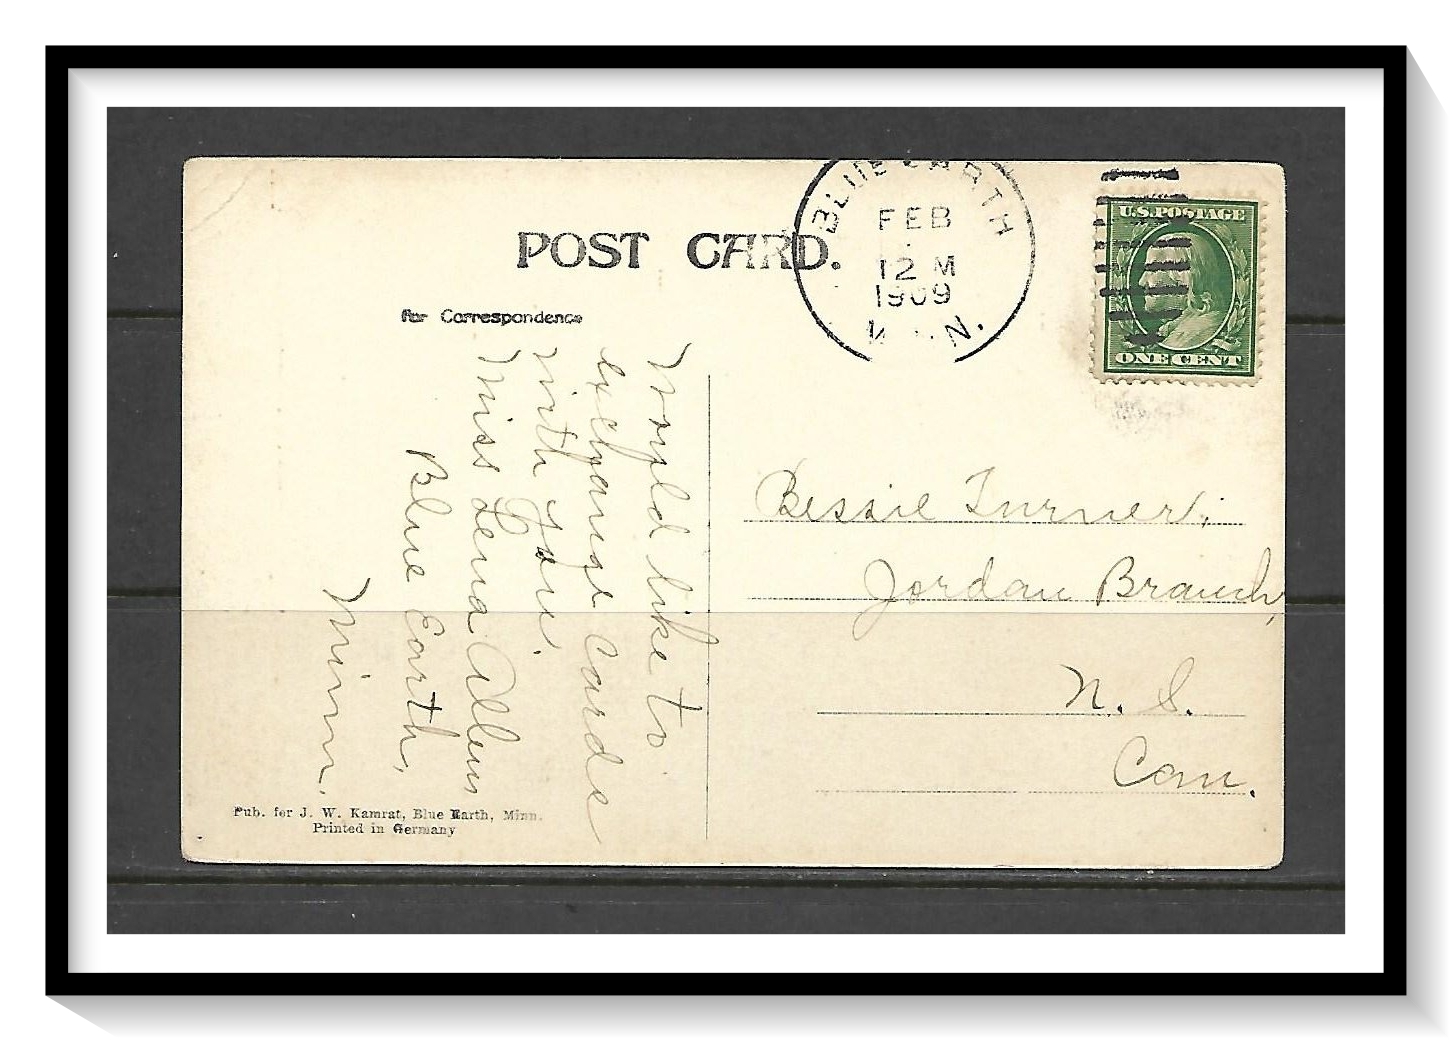 POST CARD.
for Correspondence
BLUE EARTH
FEB
12 M
1909
MINN.
U.S. POSTAGE
ONE CENT
Would like to
exchange cards
with you.
Miss Lena Allen
Blue Earth,
Minn.
Bessie Turner,
Jordan Branch,
N. S.
Can.
Pub. for J. W. Kamrat, Blue Earth, Minn.
Printed in Germany